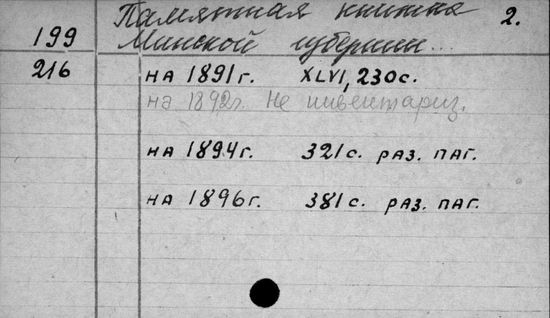 Памятная книжка 2.
199 Минской губернии...
216 на 1891г. XLVI, 230с.
на 1892г. Не инвентариз.
на 1894г. 321с. раз. паг.
на 1896г. 381с. раз. паг.